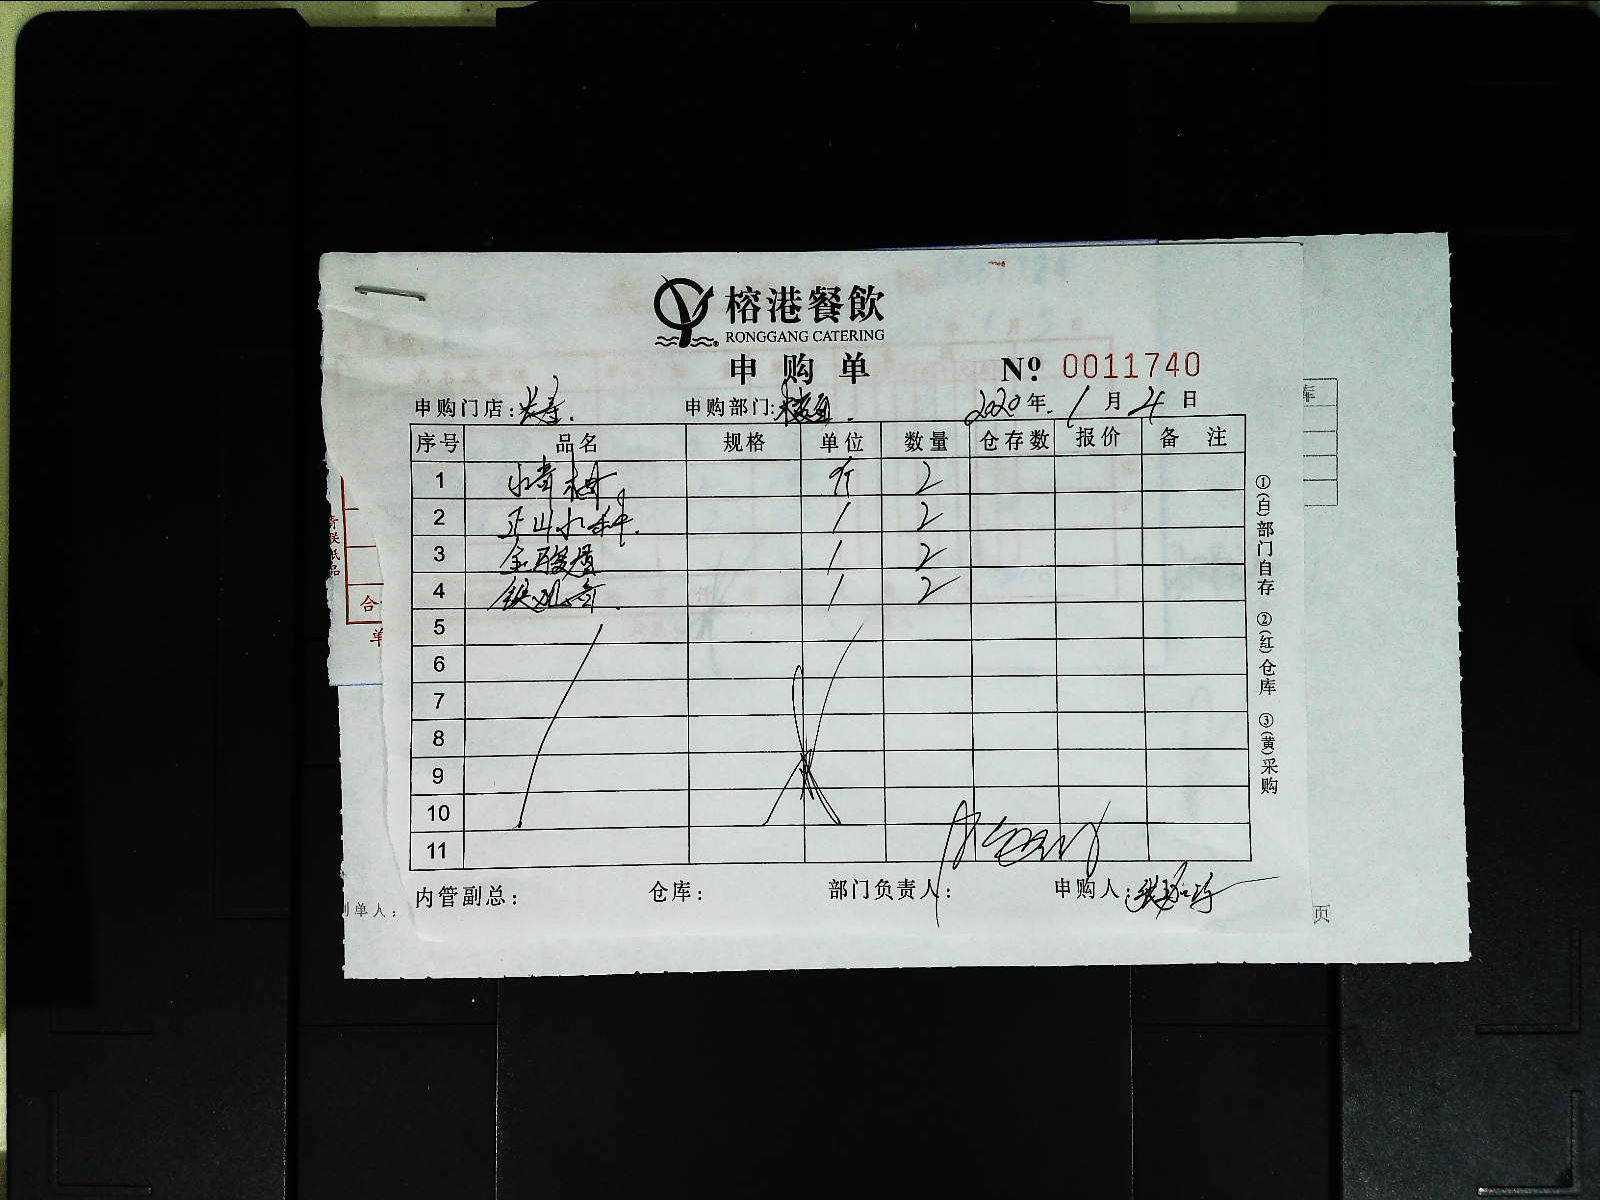 榕港餐飲
RONGGANG CATERING
申购单 № 0011740
申购门店：长寿. 申购部门： 2020年.1月4日
序号 品名 规格 单位 数量 仓存数 报价 备注
1 小青柑 斤 2
2 正山小种. 1 2
3 金骏眉 1 2
4 铁观音. 1 2
5
6
7
8
9
10
11
内管副总： 仓库： 部门负责人： 申购人：
①(白)部门自存 ②(红)仓库 ③(黄)采购
库
合
单
单人：
页